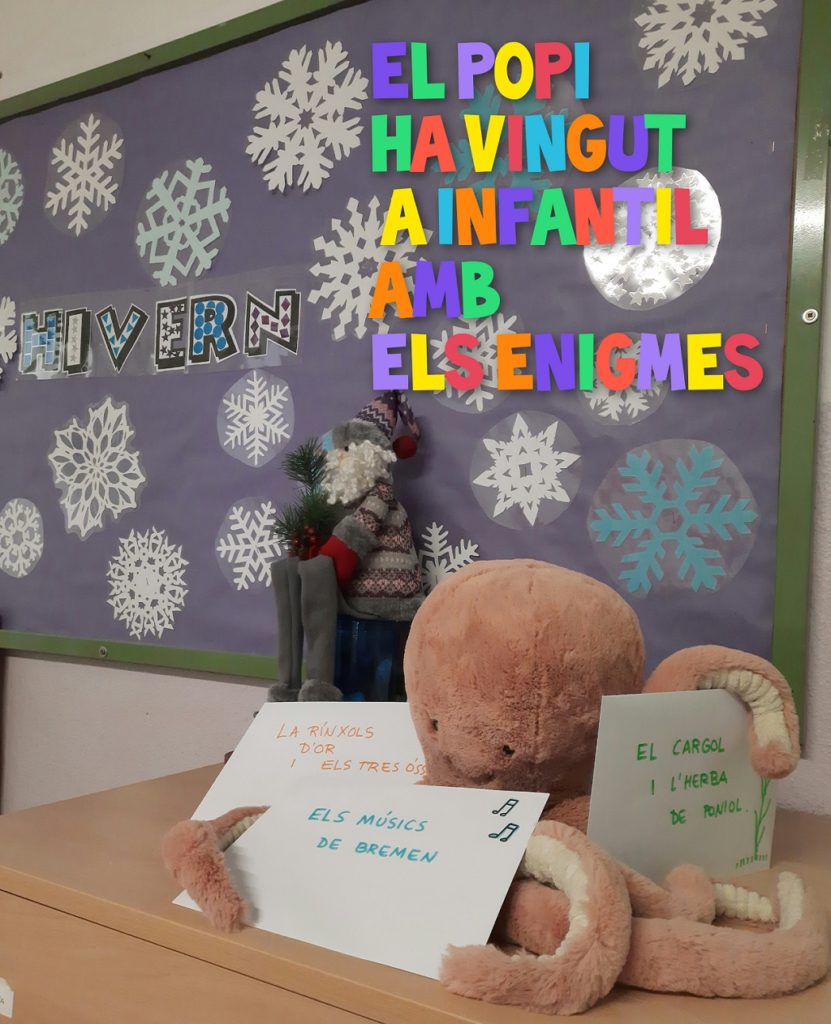 EL POPI
HA VINGUT
A INFANTIL
AMB
ELS ENIGMES
HIVERN
LA RÍNXOLS
D'OR
I ELS TRES ÓSS
ELS MÚSICS
DE BREMEN
EL CARGOL
I L'HERBA
DE PONIOL.